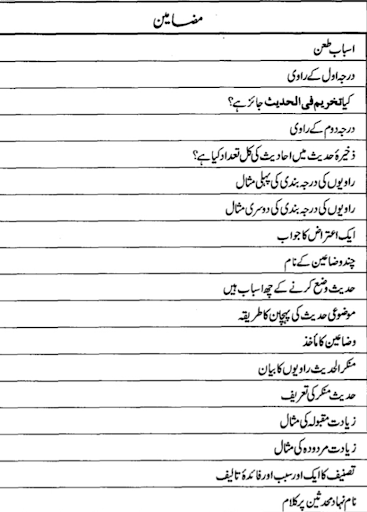 مضامین
اسباب طعن
درجہ اول کے راوی
کیا تخریم فی الحدیث جائز ہے؟
درجہ دوم کے راوی
ذخیرۂ حدیث میں احادیث کی کل تعداد کیا ہے؟
راویوں کی درجہ بندی کی پہلی مثال
راویوں کی درجہ بندی کی دوسری مثال
ایک اعتراض کا جواب
چند وضاعین کے نام
حدیث وضع کرنے کے چھ اسباب ہیں
موضوعی حدیث کی پہچان کا طریقہ
وضاعین کا مأخذ
منکر الحدیث راویوں کا بیان
حدیث منکر کی تعریف
زیادت مقبولہ کی مثال
زیادت مردودہ کی مثال
تصنیف کا ایک اور سبب اور فائدۂ تالیف
نام نہاد محدثین پر کلام